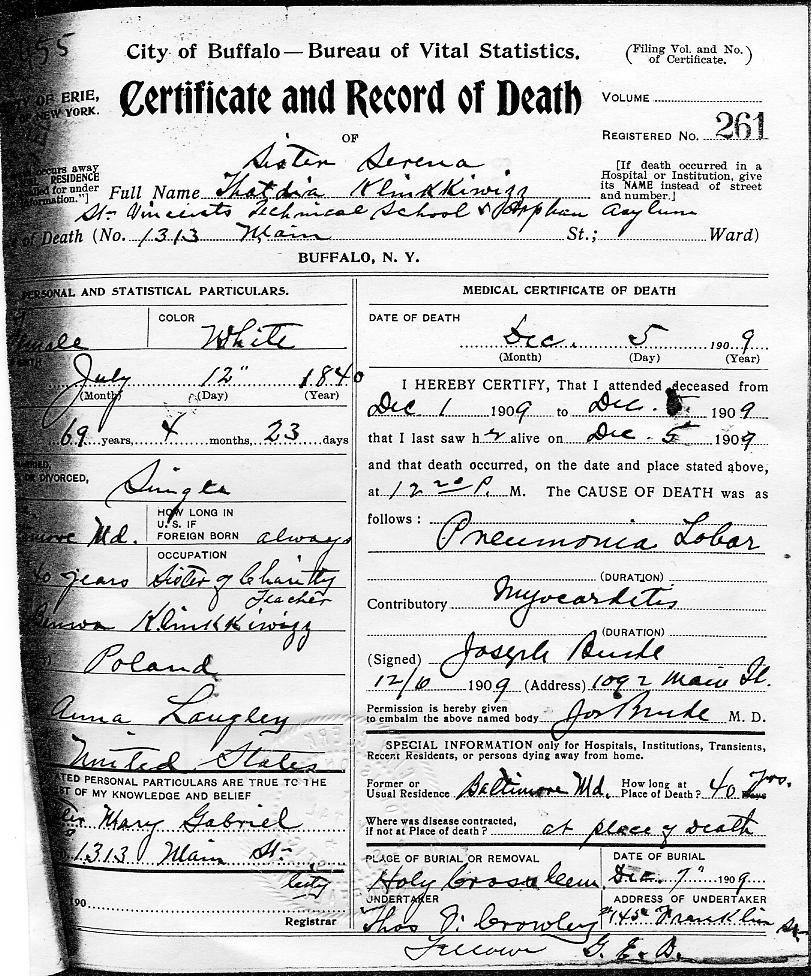 455
City of Buffalo — Bureau of Vital Statistics.
(Filing Vol. and No. of Certificate.)
OF ERIE,
NEW YORK.
Certificate and Record of Death
VOLUME
REGISTERED No. 261
OF
Sister Serena
occurs away
RESIDENCE
for under
formation."]
Full Name Thatdia Klinkkiwigz
[If death occurred in a Hospital or Institution, give its NAME instead of street and number.]
St. Vincents Technical School & Orphan Asylum
of Death (No. 1313 Main St.; Ward)
BUFFALO, N. Y.
PERSONAL AND STATISTICAL PARTICULARS.
COLOR
White
July 12" 1840
(Month) (Day) (Year)
69 years, 4 months, 23 days
OR DIVORCED,
Single
Md.
HOW LONG IN
U. S. IF
FOREIGN BORN always
OCCUPATION
40 years Sister of Charity
Teacher
Klinkkiwigz
Poland
Anna Langley
United States
PERSONAL PARTICULARS ARE TRUE TO THE
OF MY KNOWLEDGE AND BELIEF
Mary Gabriel
1313 Main St.
City
190
Registrar
MEDICAL CERTIFICATE OF DEATH
DATE OF DEATH
Dec. 5 1909
(Month) (Day) (Year)
I HEREBY CERTIFY, That I attended deceased from
Dec 1 1909 to Dec. 5 1909
that I last saw her alive on Dec. 5 1909
and that death occurred, on the date and place stated above,
at 12 P. M. The CAUSE OF DEATH was as
follows:
Pneumonia Lobar
(DURATION)
Contributory Myocarditis
(DURATION)
(Signed) Joseph
12/6 1909 (Address) 1092 Main St.
Permission is hereby given
to embalm the above named body Jos M. D.
SPECIAL INFORMATION only for Hospitals, Institutions, Transients,
Recent Residents, or persons dying away from home.
Former or
Usual Residence Baltimore Md. How long at
Place of Death? 40 Yrs.
Where was disease contracted,
if not at Place of death? at place of death
PLACE OF BURIAL OR REMOVAL
Holy Cross Cem.
DATE OF BURIAL
Dec. 7" 1909
UNDERTAKER
Thos Crowley
ADDRESS OF UNDERTAKER
Franklin St.
G. E. B.